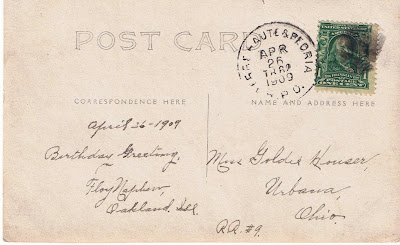 POST CARD
TERRE HAUTE & PEORIA
APR
26
1909
R.P.O.
CORRESPONDENCE HERE
NAME AND ADDRESS HERE
April 26-1909
Birthday Greeting.
Floy
Oakland. Ill.
Miss Goldie Houser,
Urbana,
Ohio.
R.R. #9.